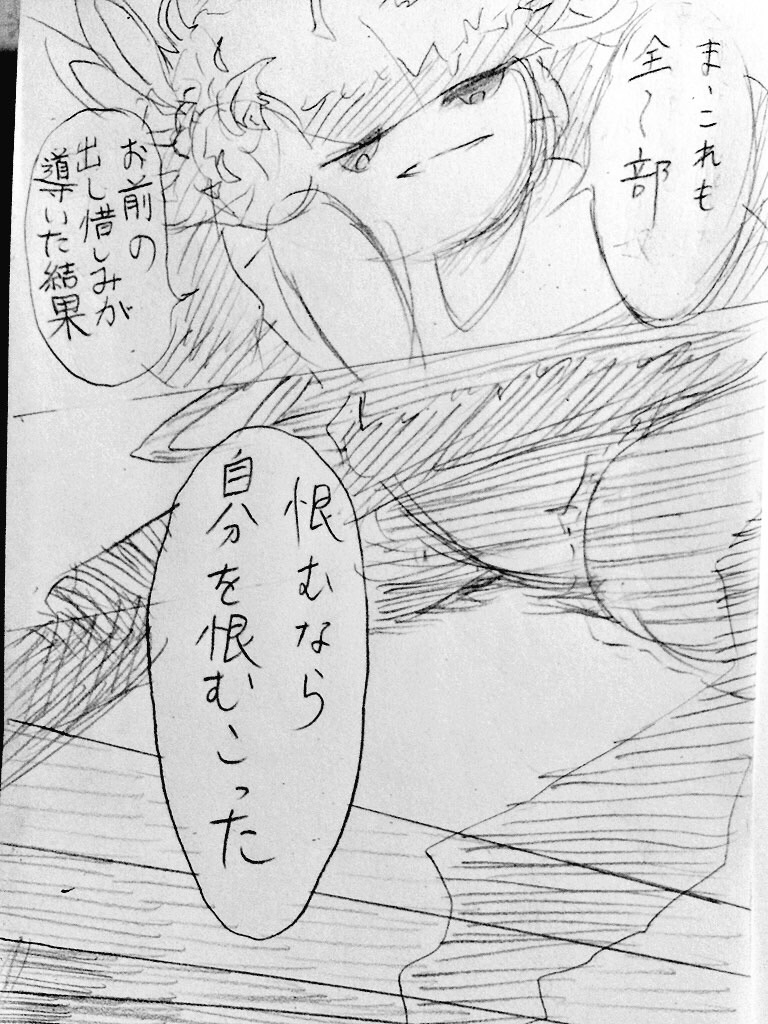 ま、これも
全〜部
お前の
出し惜しみが
導いた結果
恨むなら
自分を恨むこった